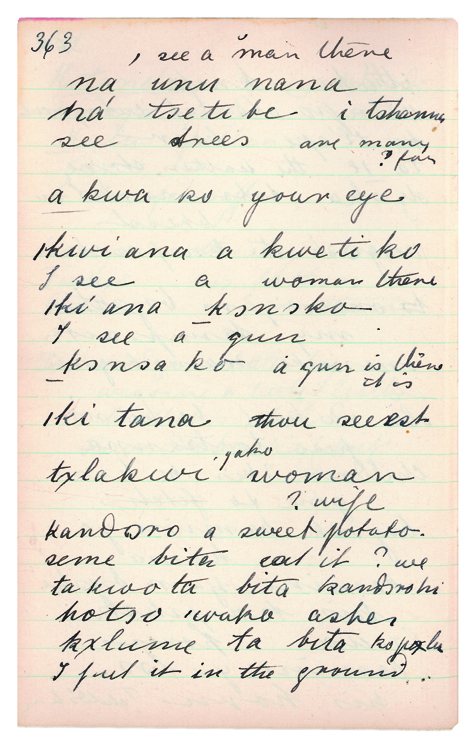 363
, see a man there
na unu nana
ná tsetibe i tshannu
see trees are many
? far
a kwa ko your eye
ikwi ana a kweti ko
I see a woman there
iki ana ksnsko
I see a gun
ksnsa ko a gun is there
it is
iki tana thou seest
yako
txlakwi woman
? wife
a sweet potato.
seme bita eat it ? we
ta kwo ta bita
hotso iwako ashes
kxlume ta bita
I put it in the ground.